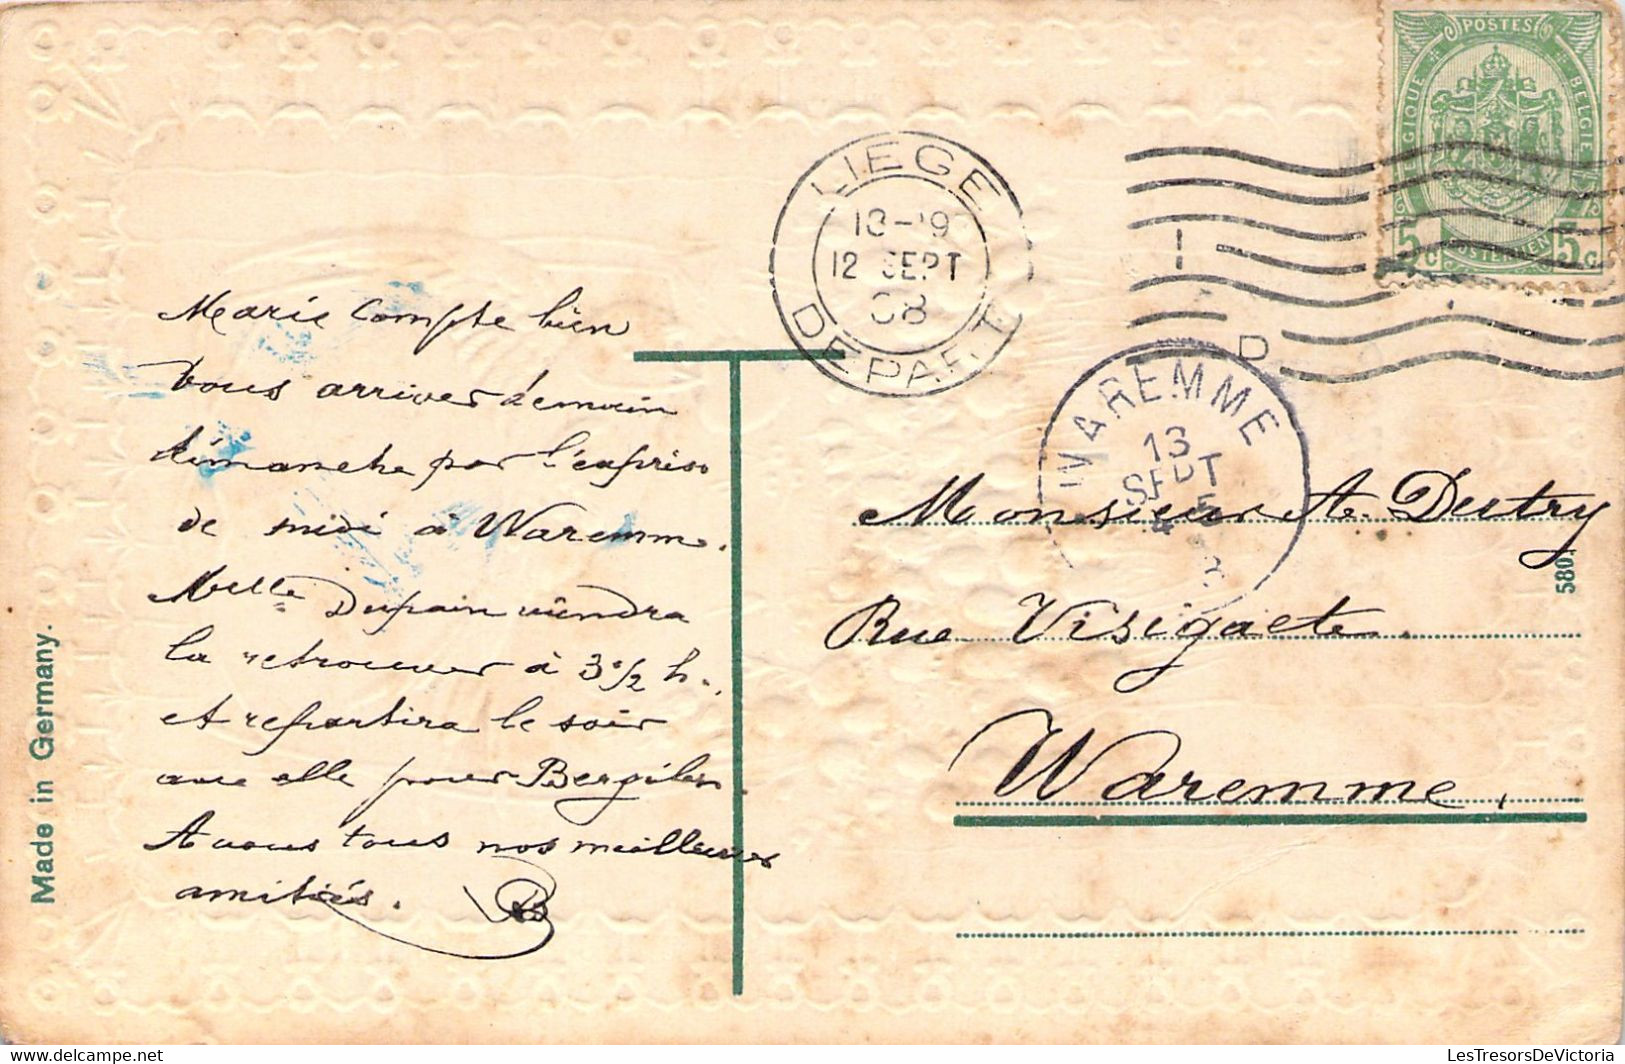 POSTES
BELGIQUE BELGIË
5 C POSTERIJEN 5 C
LIEGE
12 SEPT
08
DEPART
WAREMME
13
SEPT
Marie Compte bien
vous arriver demain
dimanche par l'express
de midi à Waremme.
Melle Dupain viendra
la retrouver à 3 1/2 h.
et repartira le soir
avec elle pour Bergilers
A vous tous nos meilleures
amitiés.
Monsieur A. Destry
Rue
Waremme.
5801
Made in Germany.
LesTresorsDeVictoria
delcampe.net